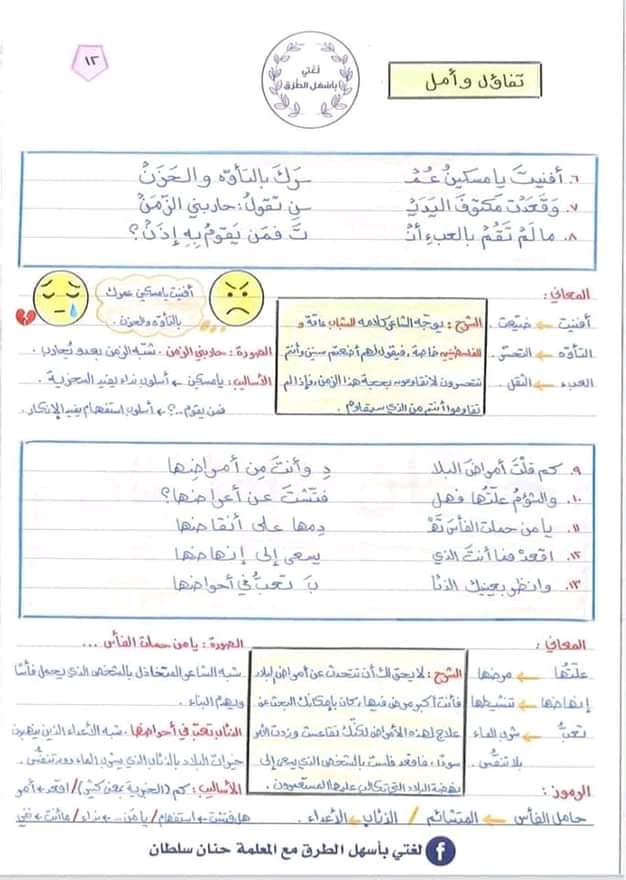 ١٢
لغتي
بأسهل الطرق
تفاؤل وأمل
٦. أفنيتَ يا مسكينُ عُمْـ سرَكَ بالتأوّه والحَزَنْ
٧. وَقَعَدْتَ مَكتوفَ اليَدَيْـ سنِ تقولُ: حاربني الزّمَنْ
٨. ما لَمْ تَقُمْ بالعبءِ أنْـ تَ فمَن يَقومُ بِهِ إذَنْ؟
المعاني:
أفنيت ← ضيّعت.
التأوّه ← التحسّر.
العبء ← الثقل.
الشرح: يوجّه الشاعر كلامه للشباب عامّة و
للفلسطينيين خاصة، فيقول لهم أضعتم سنين وأنتم
تتحسرون لا تقاومون بحجة هذا الزمن، فإذا لم
تقاوموا أنتم من الذي سيقاوم.
أفنيت يا مسكين عمرك
بالتأوّه والحزن.
الصورة: حاربني الزمن. شبّه الزمن بعدو يُحارب.
الأساليب: يا مسكين ← أسلوب نداء يفيد السخرية.
فمن يقوم..؟ ← أسلوب استفهام يفيد الإنكار.
٩. كم قلْتَ أمراضَ البلا دِ وأنتَ مِن أمراضِها
١٠. والشؤمُ علّتُها فهل فتّشتَ عن أعراضها؟
١١. يا من حملتَ الفأسَ تَهْـ دِمها على أنقاضها
١٢. اقعدْ فما أنتَ الذي يسعى إلى إنهاضها
١٣. وانظر بعينيك الذئا بَ تعبُّ في أحواضها
المعاني:
علّتُها ← مرضها
إنهاضها ← تنشيطها
تعبُّ ← شرب الماء
بلا تنفّس.
الشرح: لا يحق لك أن تتحدث عن أمراض البلاد
فأنت أكبر مرض فيها، كان بإمكانك البحث عن
علاج لهذه الأمراض لكنّك تقاعست وزدت الأمر
سوءًا، فاقعد فلست بالشخص الذي يسعى إلى
نهضة البلاد التي تكالب عليها المستعمرون.
الصورة: يا من حملت الفأس...
شبه الشاعر المتخاذل بالشخص الذي يحمل فأسًا
ويهدم البناء.
الذئاب تعبّ في أحواضها. شبه الأعداء الذين ينهبون
خيرات البلاد بالذئاب الذي يشرب الماء دون تنفّس.
الأساليب: كم (الخبرية بمعنى كثير)/ اقعد ← أمر
هل فتشت ← استفهام/ يا من.. ← نداء/ ما أنت ← نفي
الرموز:
حامل الفأس ← المتشائم / الذئاب ← الأعداء.
لغتي بأسهل الطرق مع المعلمة حنان سلطان